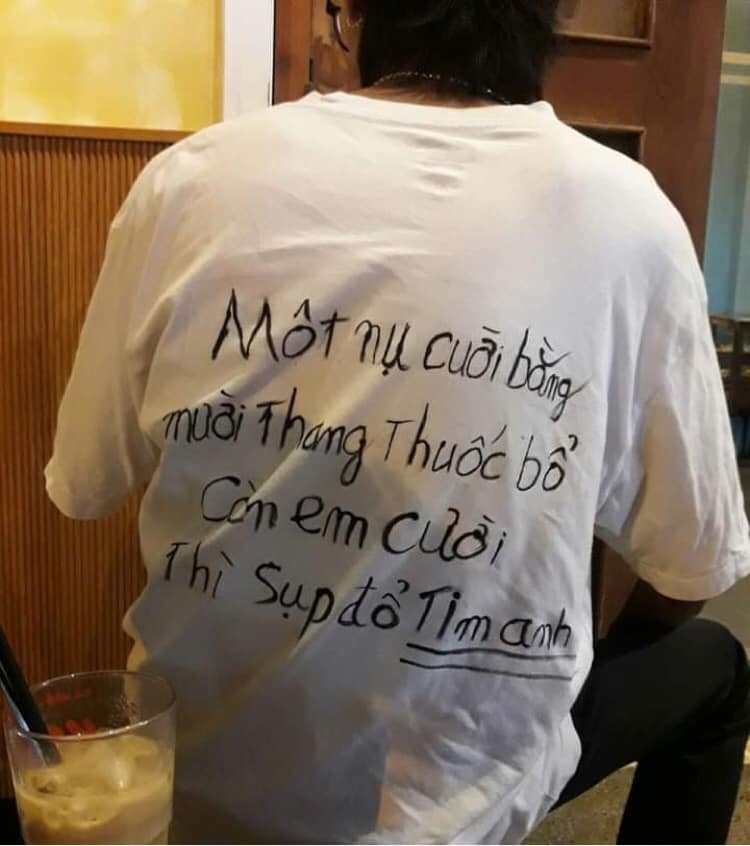 Một nụ cười bằng
mười Thang Thuốc bổ
Còn em cười
Thì Sụp đổ Tim anh